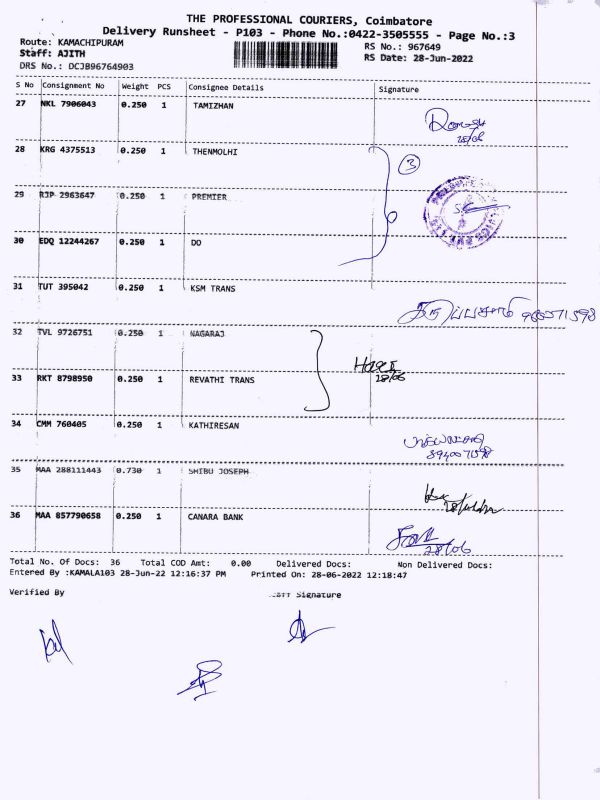 THE PROFESSIONAL COURIERS, Coimbatore
Delivery Runsheet - P103 - Phone No.:0422-3505555 - Page No.:3
Route: KAMACHIPURAM RS No.: 967649
Staff: AJITH RS Date: 28-Jun-2022
DRS No.: DCJB96764903
S No Consignment No Weight PCS Consignee Details Signature
27 NKL 7906043 0.250 1 TAMIZHAN
28/06
28 KRG 4375513 0.250 1 THENMOLHI
3
29 RJP 2963647 0.250 1 PREMIER
30 EDQ 12244267 0.250 1 DO
31 TUT 395042 0.250 1 KSM TRANS
32 TVL 9726751 0.250 1 NAGARAJ
33 RKT 8798950 0.250 1 REVATHI TRANS
28/06
34 CMM 760405 0.250 1 KATHIRESAN
35 MAA 288111443 0.730 1 SHIBU JOSEPH
36 MAA 857790658 0.250 1 CANARA BANK
28/06
Total No. Of Docs: 36 Total COD Amt: 0.00 Delivered Docs: Non Delivered Docs:
Entered By :KAMALA103 28-Jun-22 12:16:37 PM Printed On: 28-06-2022 12:18:47
Verified By Signature